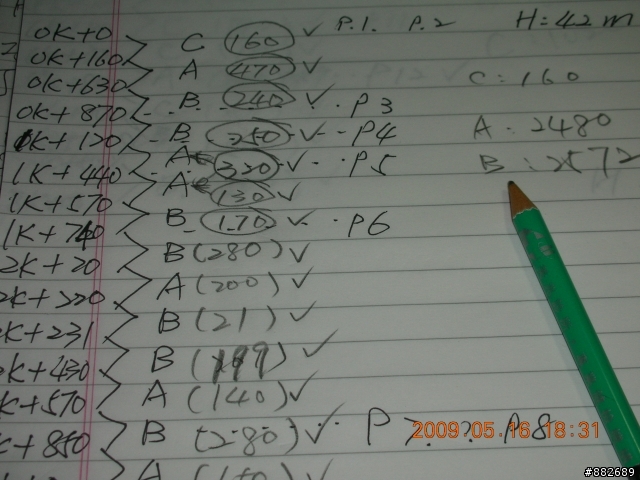 P.1. P.2 H=42m
0K+0
C (160) ✓
0K+160
C: 160
A (470) ✓
0K+630
B (240) ✓ · P3
0K+870
A: 2480
B (250) ✓ - P4
1K+120
B: 2572
A (320) ✓ · P5
1K+440
A (130) ✓
1K+570
B (170) ✓ · P6
1K+740
B (280) ✓
2K+20
A (200) ✓
2K+220
B (21) ✓
K+231
B (199) ✓
K+430
A (140) ✓
K+570
B (280) ✓ · P7. ? P8
K+850
A
2009.05.16 18:31
#882689